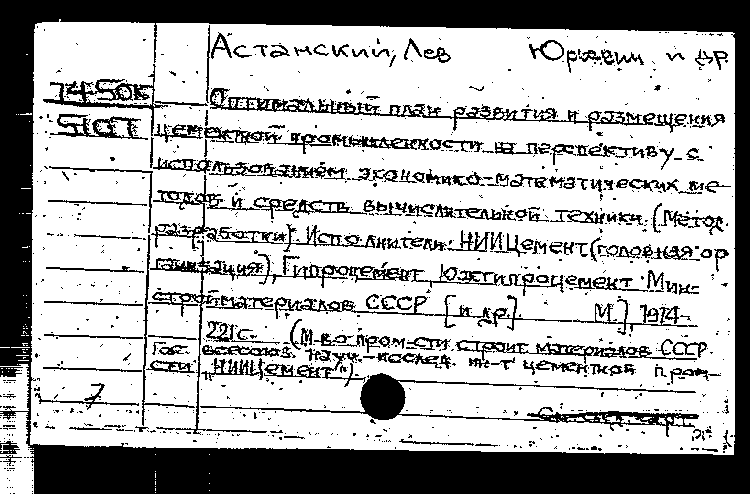 Астанский, Лев Юрьевич и др.
Оптимальный план развития и размещения
цементной промышленности на перспективу с
использованием экономико-математических ме-
тодов и средств вычислительной техники. (Метод.
разработки). Исполнители: НИИЦемент (головная ор
ганизация), Гипроцемент, Южгипроцемент Мин-
стройматериалов СССР [и др.]. М.], 1974-
221 с. (М-во пром-сти строит. материалов СССР.
Гос. всесоюз. науч.-исслед. ин-т цементной пром-
сти "НИИЦемент").
7